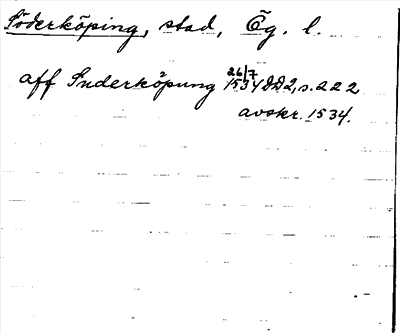 Söderköping, stad, Ög. l.
aff Suderköpung 26/7 1534 DD2, s. 222
avskr. 1534.